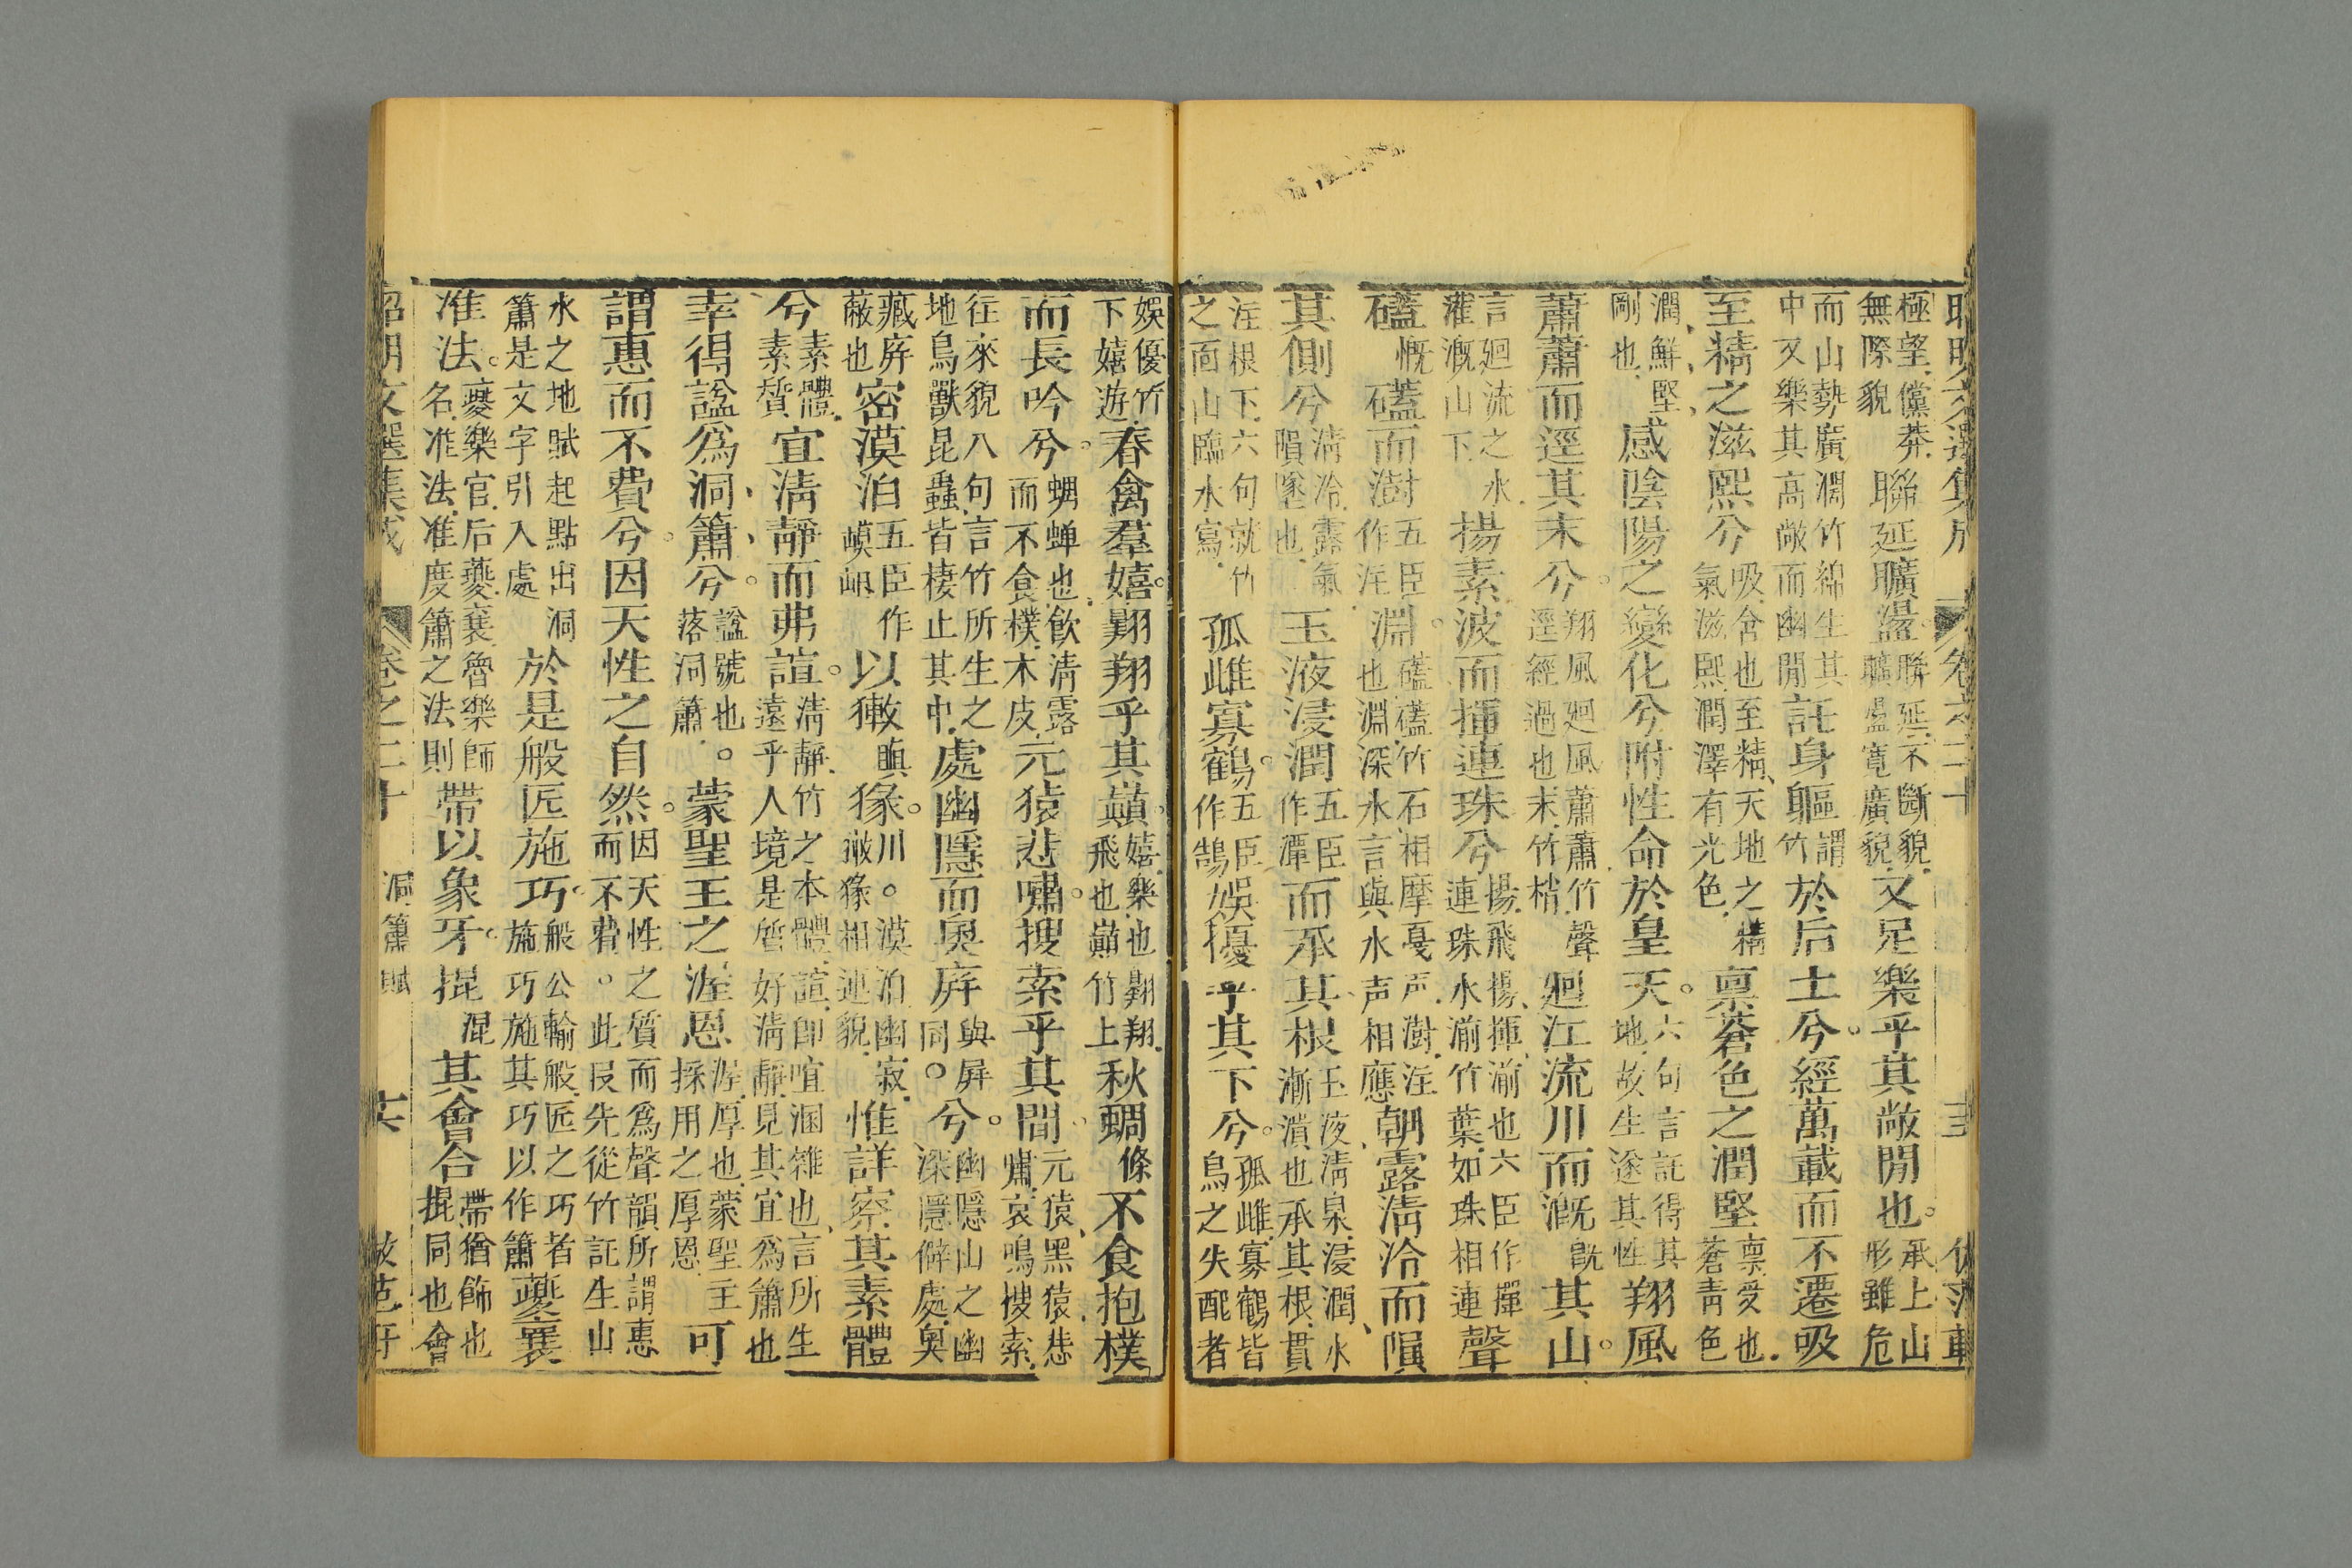 極望儻莽
無際貌
聯延曠盪
聯延不斷貌
曠盪寬廣貌
又足樂乎其敞閒也
承上山
形雖危
而山勢廣濶竹綿生其
中又樂其高敞而幽閒
託身軀
謂
竹
於后土兮經萬載而不遷吸
至精之滋熙兮
吸含也至精天地之精
氣滋熙潤澤有光色
禀蒼色之潤堅
禀受也
蒼青色
潤鮮堅
剛也
感陰陽之變化兮附性命於皇天
六句言託得其
地故生遂其性
翔風
蕭蕭而逕其末兮
翔風廻風蕭蕭竹聲
逕經過也末竹梢
廻江流川而溉
旣
其山
言廻流之水
灌溉山下
揚素波而揮連珠兮
揚飛揚揮湔也六臣作揮
連珠水湔竹葉如珠相連
聲
礚
慨
礚而澍
五臣
作注
淵
礚礚竹石相摩戛声澍注
也淵深水言與水声相應
朝露淸泠而隕
其側兮
淸泠露氣
隕墜也
玉液浸潤
五臣
作潭
而承其根
玉液淸泉浸潤水
漸瀆也承其根貫
注根下六句就竹
之面山臨水寫
孤雌寡鶴
五臣
作鵠
娛優乎其下兮
孤雌寡鶴皆
鳥之失配者
娛優竹
下嬉遊
春禽羣嬉翺翔乎其巔
嬉樂也翺翔
飛也巔竹上
秋蜩
條
不食抱樸
而長吟兮
蜩蟬也飲淸露
而不食樸木皮
元猿悲嘯搜索乎其間
元猿黑猿悲
嘯哀鳴搜索
往來貌八句言竹所生之
地鳥獸昆蟲皆棲止其中
處幽隱而奥庰
與屏
同
兮
幽隱山之幽
深隱僻處奥
藏庰
蔽也
密漠泊
五臣作
嶼岶
以㺖
瞋
猭
川漠泊幽寂
㺖猭相連貌
惟詳察其素體
兮
素體
素質
宜淸靜而弗諠
淸靜竹之本體諠卽喧溷雜也言所生
遠乎人境是質好淸靜見其宜爲簫也
幸得諡爲洞簫兮
諡號也
落洞簫
蒙聖王之渥恩
渥厚也蒙聖主
採用之厚恩
可
謂惠而不費兮因天性之自然
因天性之質而爲聲韻所謂惠
而不費此叚先從竹託生山
水之地賦起點出洞
簫是文字引入處
於是般匠施巧
般公輸般匠之巧者
施巧施其巧以作簫
夔襄
准法
夔樂官后夔襄魯樂師
名准法准度簫之法則
帶以象牙掍
混
其會合
帶猶飾也
掍同也會
卷之二十
洞簫賦